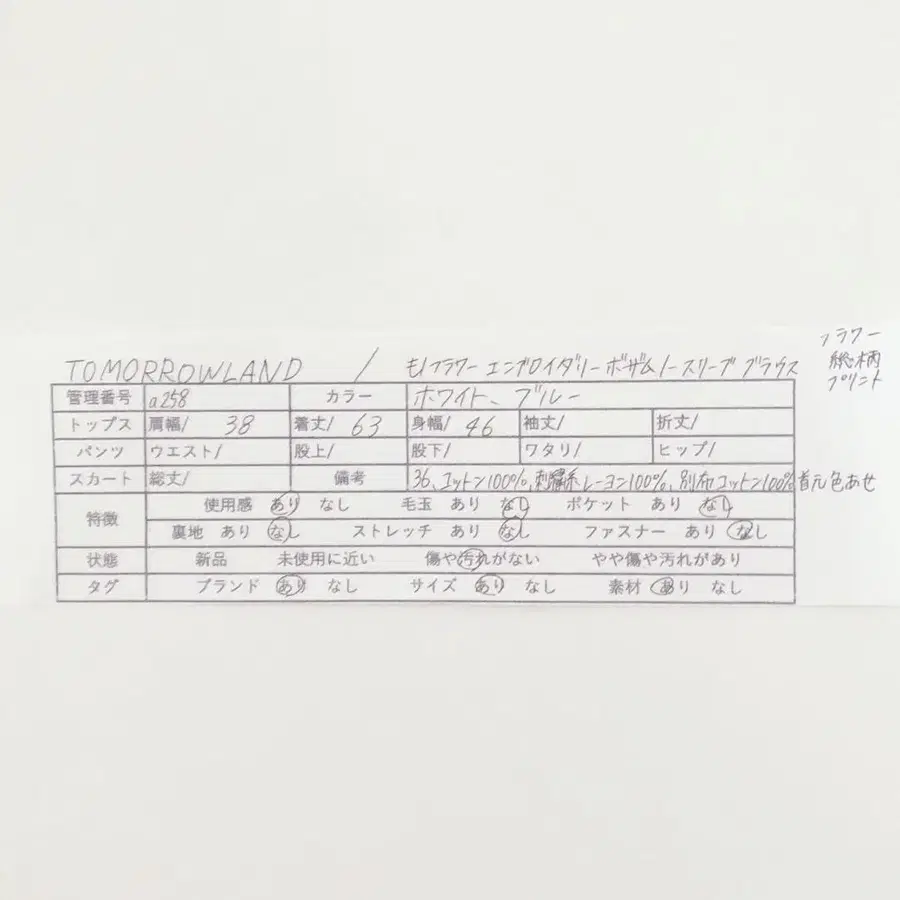 フラワー
総柄
プリント
TOMORROWLAND / モノフラワー エンブロイダリー ボザム ノースリーブ ブラウス
管理番号 a258 カラー ホワイト、ブルー
トップス 肩幅/ 38 着丈/ 63 身幅/ 46 袖丈/ 裄丈/
パンツ ウエスト/ 股上/ 股下/ ワタリ/ ヒップ/
スカート 総丈/ 備考 36、コットン100%、刺繍糸レーヨン100%、別布コットン100% 首元色あせ
特徴 使用感 あり なし 毛玉 あり なし ポケット あり なし
裏地 あり なし ストレッチ あり なし ファスナー あり なし
状態 新品 未使用に近い 傷や汚れがない やや傷や汚れがあり
タグ ブランド あり なし サイズ あり なし 素材 あり なし